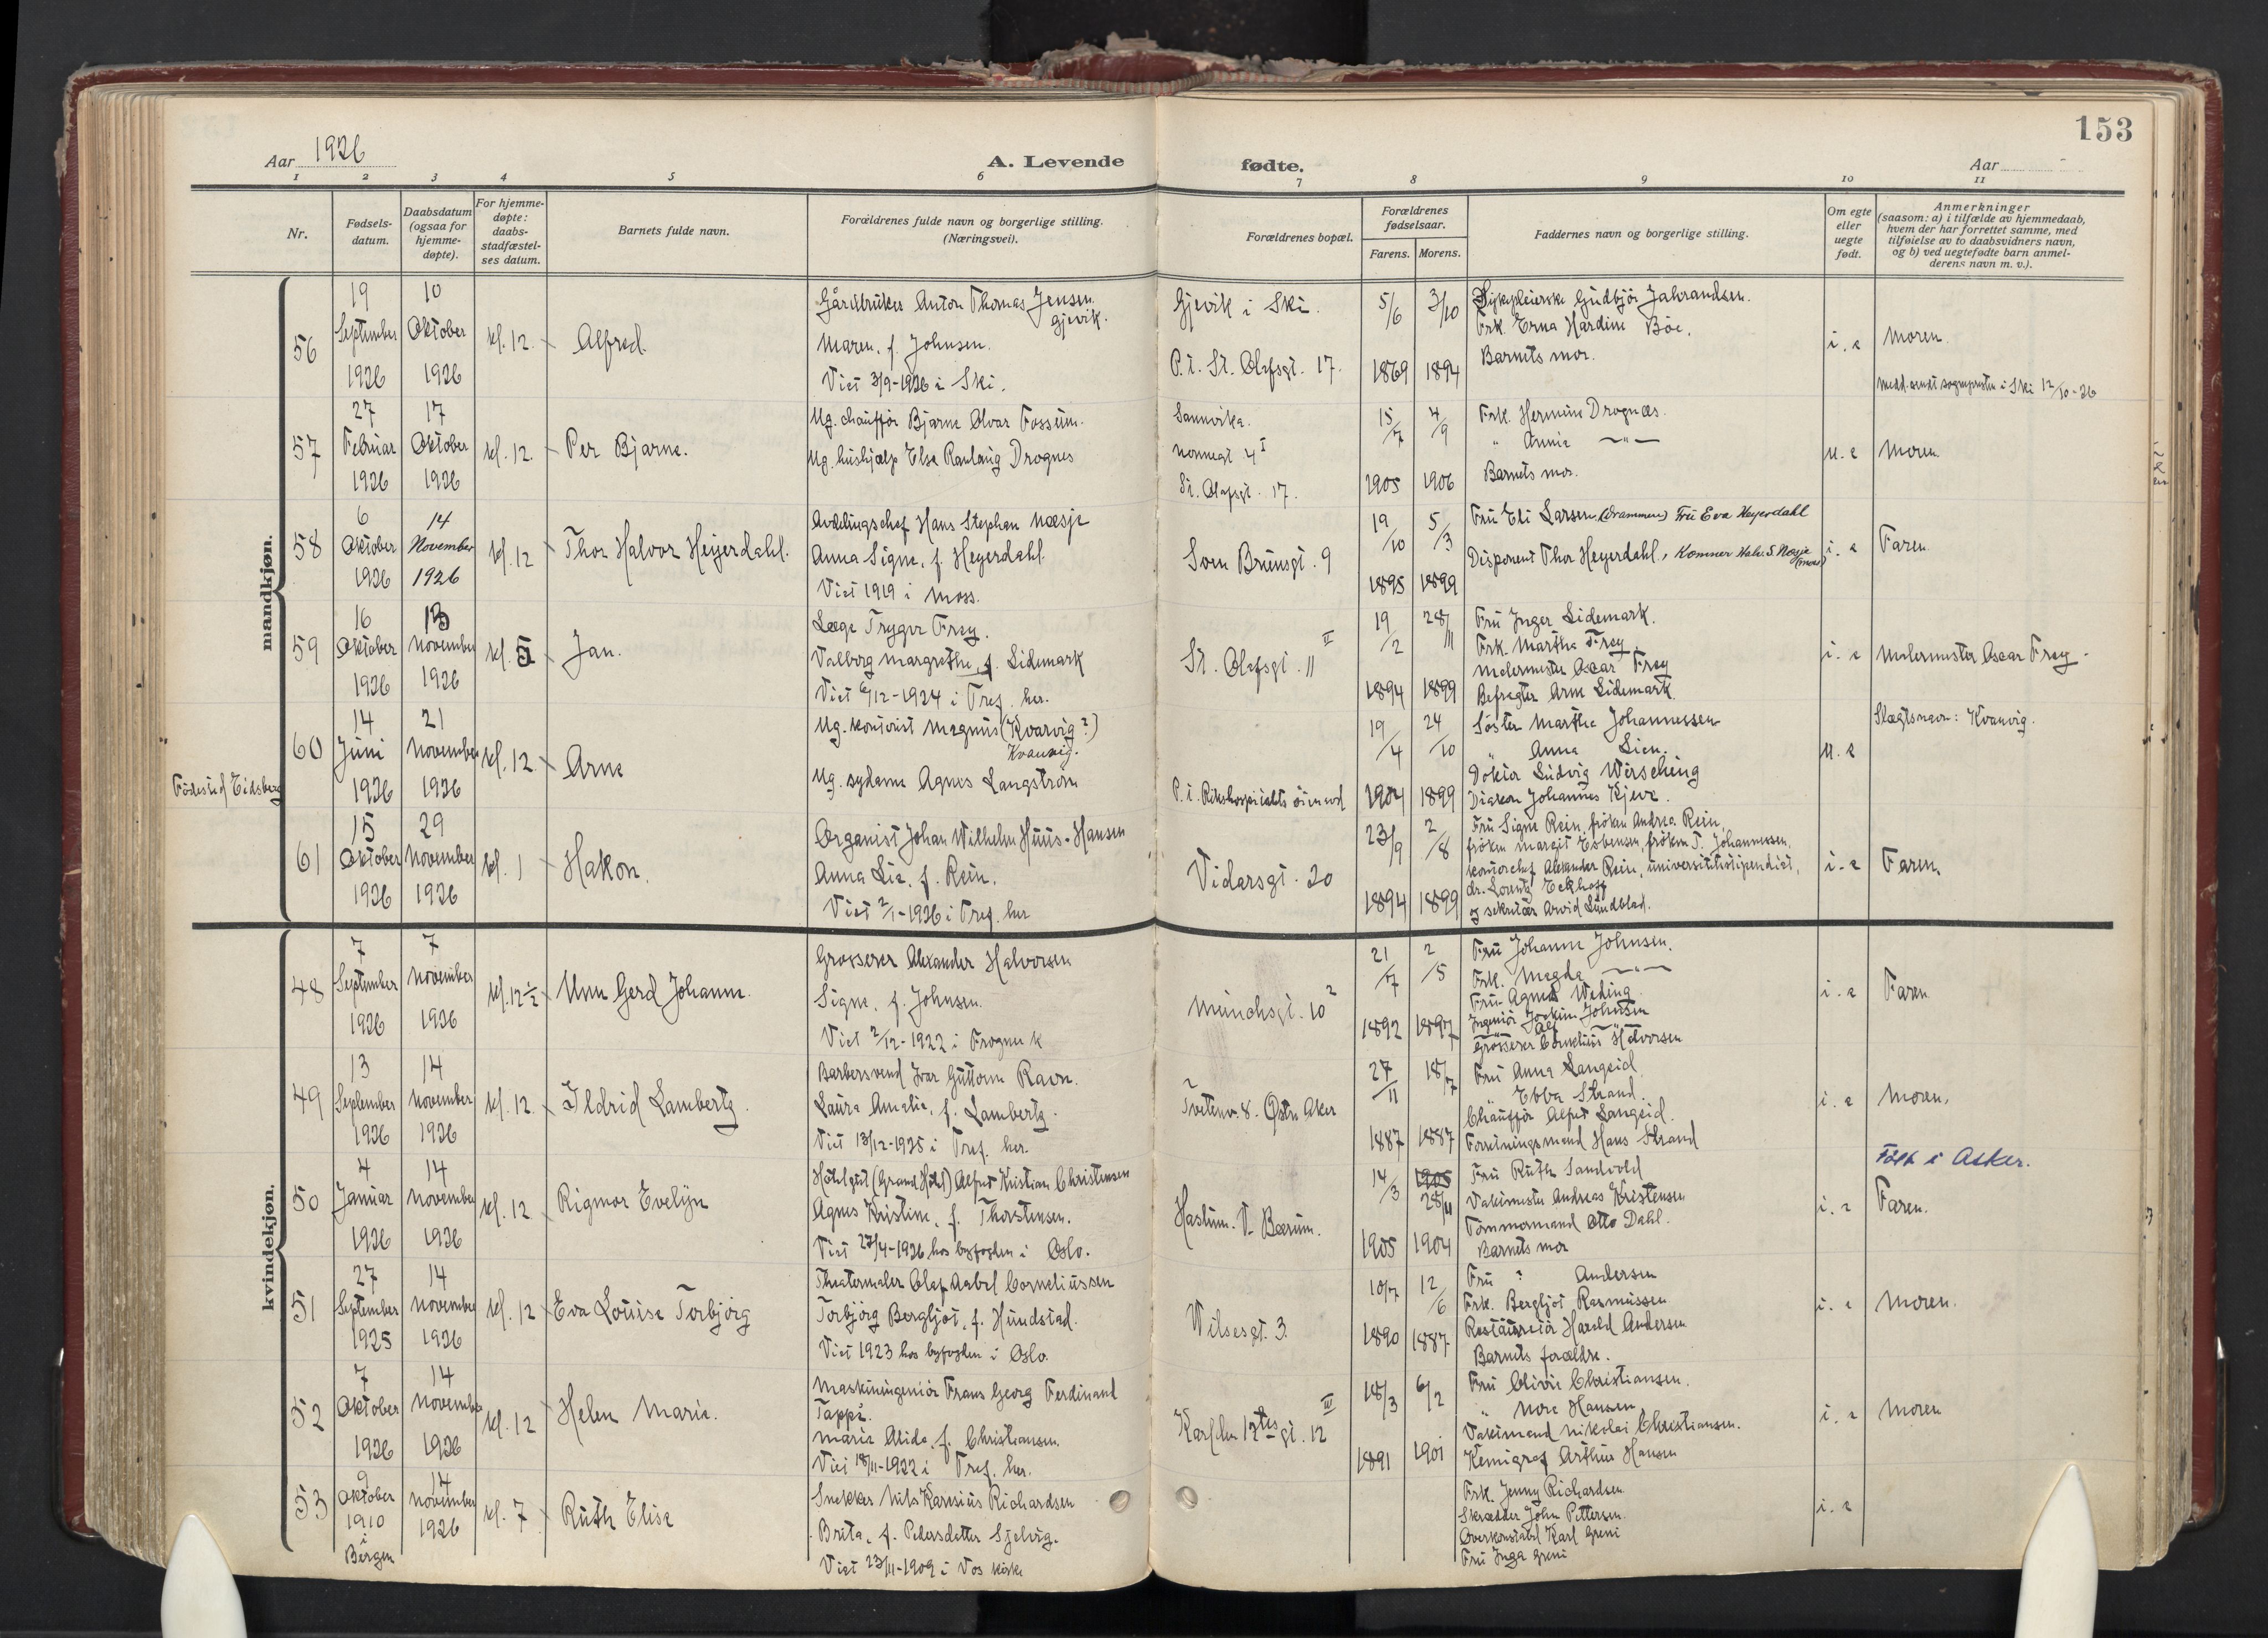 153
Aar 1926
A. Levende fødte.
Aar
1 2 3 4 5 6 7 8 9 10 11
Nr.
Fødsels-
datum.
Daabsdatum
(ogsaa for
hjemme-
døpte).
For hjemme-
døpte:
daabs-
stadfæstel-
ses datum.
Barnets fulde navn.
Forældrenes fulde navn og borgerlige stilling.
(Næringsvei).
Forældrenes bopæl.
Forældrenes
fødselsaar.
Farens. Morens.
Faddernes navn og borgerlige stilling.
Om egte
eller
uegte
født.
Anmerkninger
(saasom: a) i tilfælde av hjemmedaab,
hvem der har forrettet samme, med
tilføielse av to daabsvidners navn,
og b) ved uegtefødte barn anmel-
derens navn m. v.).
mandkjøn.
56
19
September
1926
10
Oktober
1926
kl. 12.
Alfred.
Gårdbruker Anton Thomas Jensen
Gjevik.
Maren, f. Johnsen.
Viet 3/9-1926 i Ski.
Gjevik i Ski.
P.t. St. Olafsgt. 17.
5/6
1869
3/10
1894
Sykepleierske Gudbjør Jahrandsen.
Frk. Erna Hardine Böe.
Barnets mor.
i. e
Moren.
Medd. sendt sogneprsten i Ski 12/10-26
57
27
Februar
1926
17
Oktober
1926
kl. 12.
Per Bjarne.
Ug. chauffør Bjarne Alvar Fossum.
Ug. hushjælp Else Ranlaug Drognes
Sannvika.
Nonnegt 4 I
St. Olafsgt. 17.
15/7
1905
4/9
1906
Frk. Hermine Drognæs.
" Annie —"—
Barnets mor.
u. e
Moren.
58
6
Oktober
1926
14
November
1926
kl. 12
Thor Halvor Heyerdahl.
Avdelingschef Hans Stephan Næsje
Anna Signe, f. Heyerdahl.
Viet 1919 i Moss.
Sven Brunsgt. 9
19/10
1895
5/3
1899
Fru Eli Larsen (Drammen) Fru Eva Heyerdahl
Disponent Thor Heyerdahl, Kommer Halv. S. Næsje
(Moss)
i. e
Faren.
59
16
Oktober
1926
13
November
1926
kl. 5
Jan.
Læge Trygve Frey.
Valborg Margrethe, f. Lidemark
Viet 6/12-1924 i Tref. her.
St. Olafsgt. 11 II
19/2
1894
28/11
1899
Fru Inger Lidemark.
Frk. Martha Frey
Malermester Oscar Frey
Befragter Arne Lidemark
i. e
Malermester Oscar Frey.
60
Fødested Eidsberg
14
Juni
1926
21
November
1926
kl. 12
Arne
Ug. kontorist Magnus (Kvarvig?)
Kvanvig.
Ug. sydame Agnes Langstrøm
P.t. Rikshospitalets øienavd
19/4
1904
24/10
1899
Søster Martha Johannessen
" Anna Lien.
Doktor Ludvig Wirsching
Diakon Johannes Kjeve.
u. e
Slægtsnavn: Kvanvig.
61
15
Oktober
1926
29
November
1926
kl. 1
Hakon.
Organist Johan Wilhelm Huus-Hansen
Anna Lie, f. Rein.
Viet 2/1-1926 i Tref. her
Vidarsgt. 20
23/9
1894
2/8
1899
Fru Signe Rein, frøken Andrea Rein,
frøken Margit Esbensen, frøken T. Johannessen,
kontorchef Alexander Rein, universitetsstipendiat,
dr. Lorentz Eckhoff
og sekretær Arvid Lundblad.
i. e
Faren.
kvindekjøn.
48
7
September
1926
7
November
1926
kl. 12 1/2
Unn Gerd Johanne.
Grosserer Alexander Halvorsen
Signe, f. Johnsen.
Viet 2/12-1922 i Frogner k
Munchsgt. 10 2
21/7
1892
2/5
1897
Fru Johanne Johnsen.
Frk. Magda —"—
Fru Agnes Weding.
Ingeniør Joakim Johnsen
" Alf "
Grosserer Cornelius Halvorsen
i. e
Faren.
49
13
September
1926
14
November
1926
kl. 12
Ildrid Lambertz.
Barbersvend Ivar Guttorm Ravn.
Laura Amalie, f. Lambertz.
Viet 13/12-1925 i Tref. her.
Tvetenv. 8. Østre Aker
27/11
1887
18/7
1887
Fru Anna Langeid.
" Ebba Strand.
Chauffør Alfred Langeid.
Forretningsmand Hans Strand
i. e
Moren.
50
4
Januar
1926
14
November
1926
kl. 12
Rigmor Evelyn
Hotelgut (Grand Hotel) Alfred Kristian Christensen
Agnes Kristine, f. Thorstensen.
Viet 27/4-1926 hos byfogden i Oslo.
Haslum. V. Bærum.
14/3
1905
1905
28/11
1904
Fru Ruth Sandvold
Vaktmester Andreas Kristensen
Tømmermand Otto Dahl.
Barnets mor
i. e
Født i Asker.
Faren.
51
27
September
1925
14
November
1926
kl. 12
Eva Louise Torbjörg
Theatermaler Olaf Aabel Corneliussen
Torbjörg Bergljot, f. Hundstad.
Viet 1923 hos byfogden i Oslo.
Wilsesgt. 3.
10/7
1890
12/6
1887
Fru ? Andersen
Frk. Bergljot Rasmussen
Restauratør Harald Andersen
Barnets forældre.
i. e
Moren.
52
7
Oktober
1926
14
November
1926
kl. 12
Helen Marie.
Maskiningeniør Frans Georg Ferdinand
Tappe.
Marie Alida, f. Christiansen.
Viet 18/11-1922 i Tref. her.
Karl den 12tes gt. 12 III
18/3
1891
6/2
1901
Fru Olivie Christiansen.
" Nore Hansen
Vaktmand Nikolai Christiansen.
Kemigraf Arthur Hansen
i. e
Moren
53
9
Oktober
1910
i
Bergen
14
November
1926
kl. 7
Ruth Elise
Snekker Nils Karesius Richardsen
Brita, f. Pedersdatter Sjelvig.
Viet 23/11-1909 i Vos kirke
Frk. Jenny Richardsen
Skrædder John Pettersen.
Overkonstabel Karl Greni
Fru Inga Greni
i. e